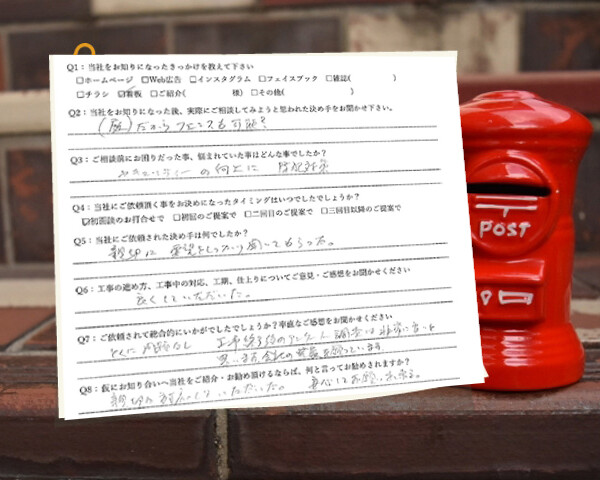 Q1：当社をお知りになったきっかけを教えて下さい
□ホームページ □Web広告 □インスタグラム □フェイスブック □雑誌( )
□チラシ ☑看板 □ご紹介( 様) □その他( )
Q2：当社をお知りになった後、実際にご相談してみようと思われた決め手をお聞かせ下さい。
だから フェンスも可能？
Q3：ご相談前にお困りだった事、悩まれていた事はどんな事でしたか？
の向上に 防犯対策
Q4：当社にご依頼頂く事をお決めになったタイミングはいつでしたでしょうか？
☑初面談のお打合せで □初回のご提案で □二回目のご提案で □三回目以降のご提案で
Q5：当社にご依頼された決め手は何でしたか？
親切に 要望をしっかり聞いてもらった。
Q6：工事の進め方、工事中の対応、工期、仕上りについてご意見・ご感想をお聞かせください
良くしていただいた。
Q7：ご依頼されて総合的にいかがでしたでしょうか？率直なご感想をお聞かせください
とくに問題なし 工事終了後のアンケート調査は非常に
会社の発展を願っています
Q8：仮にお知り合いへ当社をご紹介・お勧め頂けるならば、何と言ってお勧めされますか？
親切に いただいた。 安心してお願い出来る。
POST